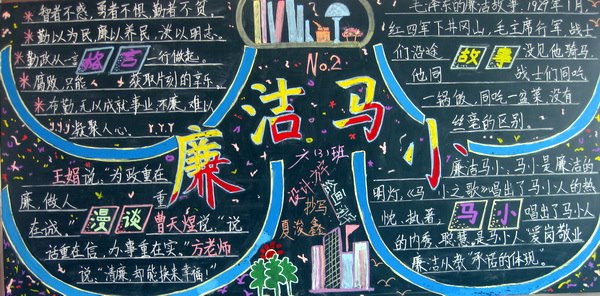 智者不惑,勇者不惧,勤者不贫。
勤以为民,廉以养民,淡以明志。
勤政从一言一行做起。
格言
腐败只能获取片刻的享乐。
不勤无以成就事业,不廉难以
聚人心。
No.2
毛泽东的廉洁故事,1929年1月,
红四军下井冈山,毛主席行军,战士
们沿途没见他骑马
故事
他同战士们同吃
一锅饭,同吃一盆菜,没有
丝毫的区别。
廉洁马小
六(3)班
设计
绘画
抄写
夏浚鑫
王娟说:“为政重在
廉,做人重
在诚。”
漫谈
曹天煜说:“说
话重在信,办事重在实。”方老师
说:“清廉却能换来幸福!”
廉洁马小,马小是廉洁的
明灯,《马小之歌》唱出了马小人的热
忱、执著,
马小
唱出了马小人
的内秀、聪慧,是马小人“爱岗敬业
廉洁从教”承诺的体现。